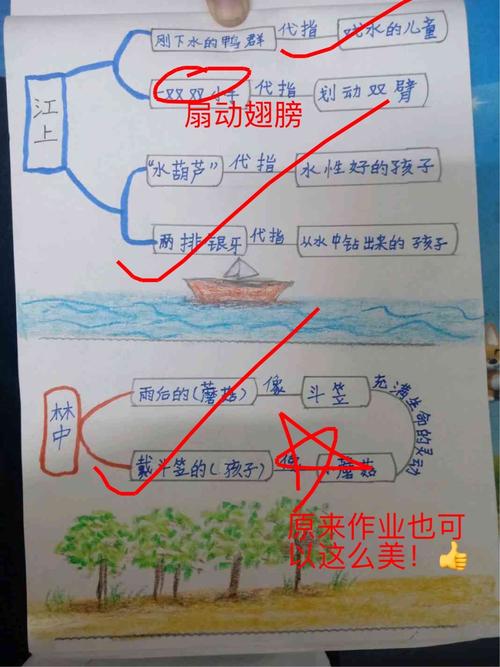 江上
刚下水的鸭群 代指 戏水的儿童
一双双小手 代指 划动双臂
扇动翅膀
“水葫芦” 代指 水性好的孩子
两排银牙 代指 从水中钻出来的孩子
林中
雨后的(蘑菇) 像 斗笠
充满生命的灵动
戴斗笠的(孩子) 像 蘑菇
原来作业也可
以这么美!👍